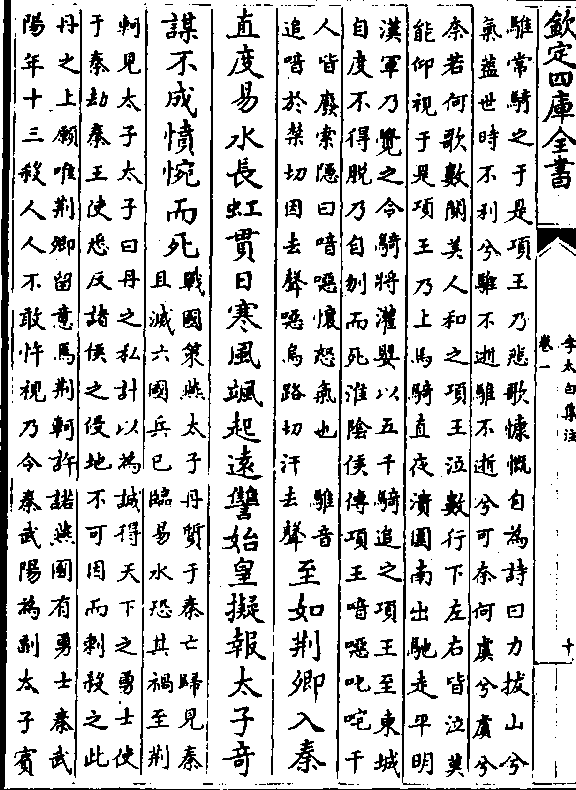 欽定四庫全書
李太白集注
卷一
十
騅常騎之于是項王乃悲歌慷慨自為詩曰力拔山兮
氣蓋世時不利兮騅不逝騅不逝兮可奈何虞兮虞兮
奈若何歌數闋美人和之項王泣數行下左右皆泣莫
能仰視于是項王乃上馬騎直夜潰圍南出馳走平明
漢軍乃覺之令騎將灌嬰以五千騎追之項王至東城
自度不得脫乃自刎而死淮陰侯傳項王喑噁叱咤千
人皆廢索隱曰喑噁懷怒氣也 騅音
追喑於禁切因去聲噁烏路切汗去聲
至如荆卿入秦
直度易水長虹貫日寒風颯起遠讐始皇擬報太子竒
謀不成憤惋而死
戰國策燕太子丹質于秦亡歸見秦
且滅六國兵已臨易水恐其禍至荆
軻見太子太子曰丹之私計以為誠得天下之勇士使
于秦劫秦王使悉反諸侯之侵地不可因而刺殺之此
丹之上願唯荆卿留意焉荆軻許諾燕國有勇士秦武
陽年十三殺人人不敢忤視乃令秦武陽為副太子賓